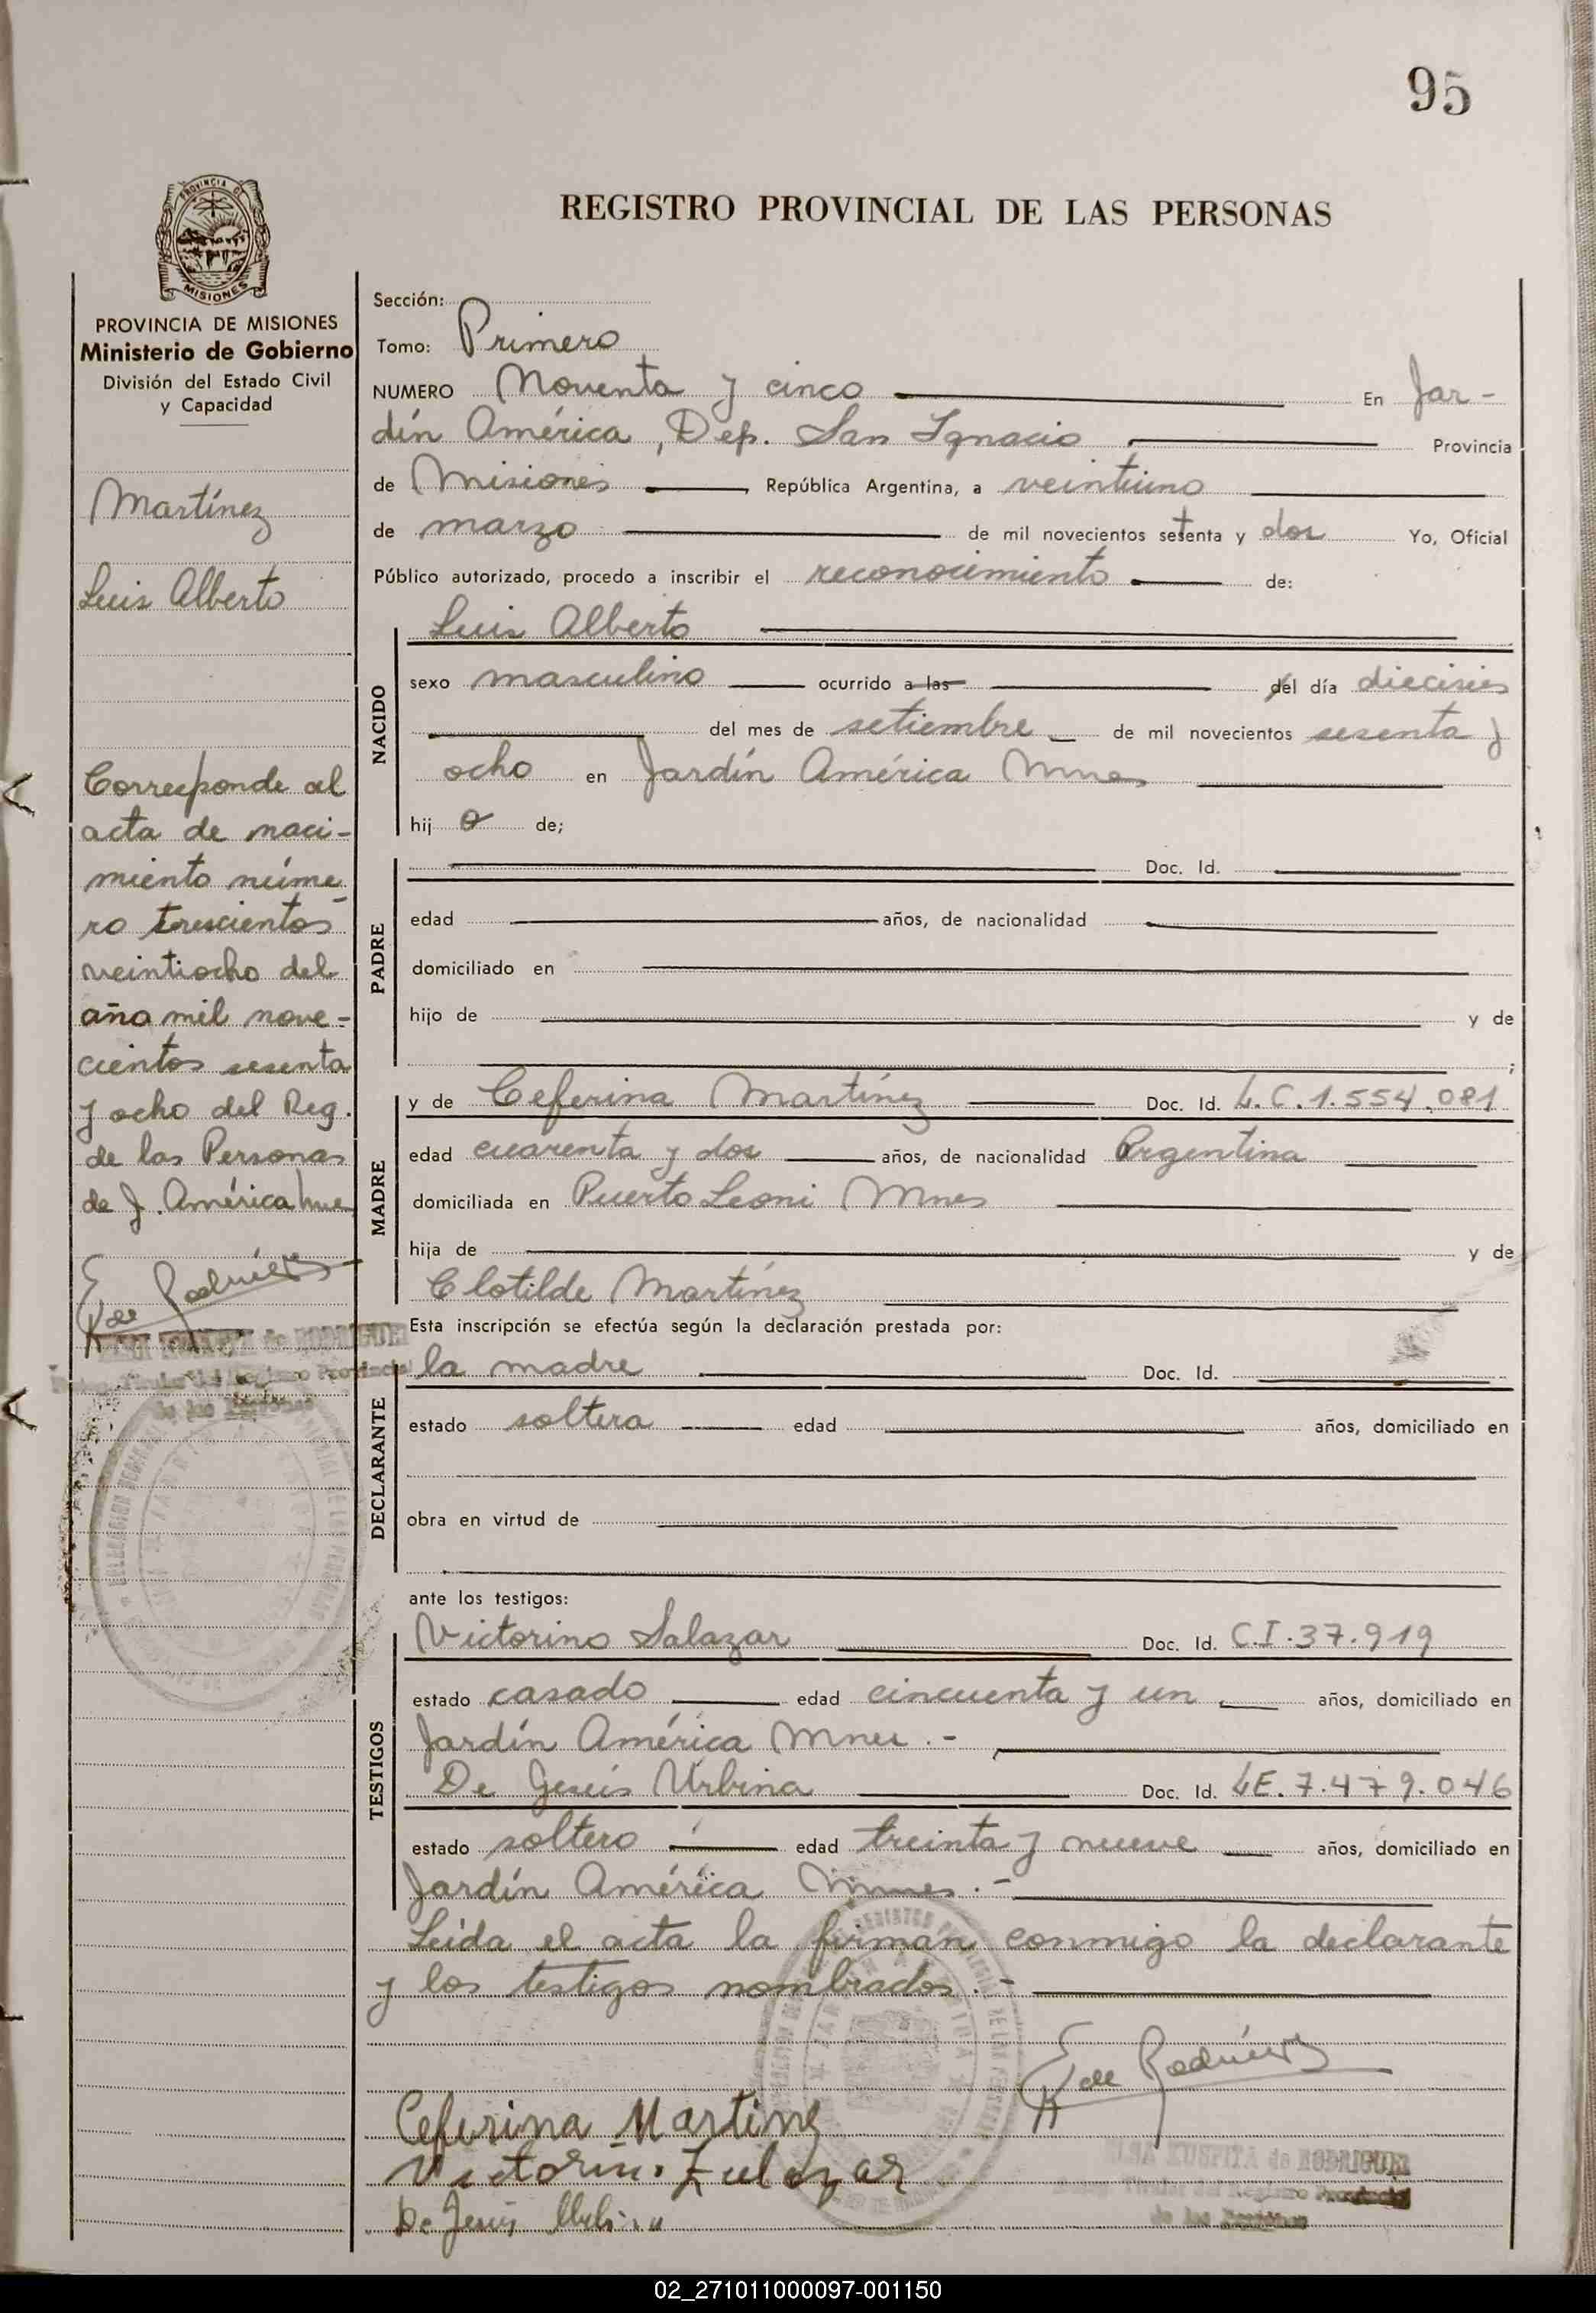 95
PROVINCIA DE
MISIONES
REGISTRO PROVINCIAL DE LAS PERSONAS
PROVINCIA DE MISIONES
Ministerio de Gobierno
División del Estado Civil
y Capacidad
Martínez
Luis Alberto
Corresponde al
acta de naci-
miento núme-
ro trescientos
veintiocho del
año mil nove-
cientos sesenta
y ocho del Reg.
de las Personas
de J. América
de RODRIGUEZ
Sección:
Tomo: Primero
NUMERO Noventa y cinco En Jar-
dín América, Dep. San Ignacio Provincia
de Misiones República Argentina, a veintiuno
de marzo de mil novecientos setenta y dos Yo, Oficial
Público autorizado, procedo a inscribir el reconocimiento de:
NACIDO
Luis Alberto
sexo masculino ocurrido a las del día dieciseis
del mes de setiembre de mil novecientos sesenta y
ocho en Jardín América Mnes
hij o de;
PADRE
Doc. Id.
edad años, de nacionalidad
domiciliado en
hijo de y de
;
MADRE
y de Ceferina Martínez Doc. Id. L.C.1.554.081
edad cuarenta y dos años, de nacionalidad Argentina
domiciliada en Puerto Leoni Mnes
hija de y de
Clotilde Martínez
Esta inscripción se efectúa según la declaración prestada por:
DECLARANTE
la madre Doc. Id.
estado soltera edad años, domiciliado en
obra en virtud de
ante los testigos:
TESTIGOS
Victorino Salazar Doc. Id. C.I.37.919
estado casado edad cincuenta y un años, domiciliado en
Jardín América Mnes.-
De Jesús Urbina Doc. Id. LE.7.479.046
estado soltero edad treinta y nueve años, domiciliado en
Jardín América Mnes.-
Leída el acta la firman conmigo la declarante
y los testigos nombrados.-
Ceferina Martinez
de RODRIGUEZ
De Jesús Urbina
02_271011000097-001150